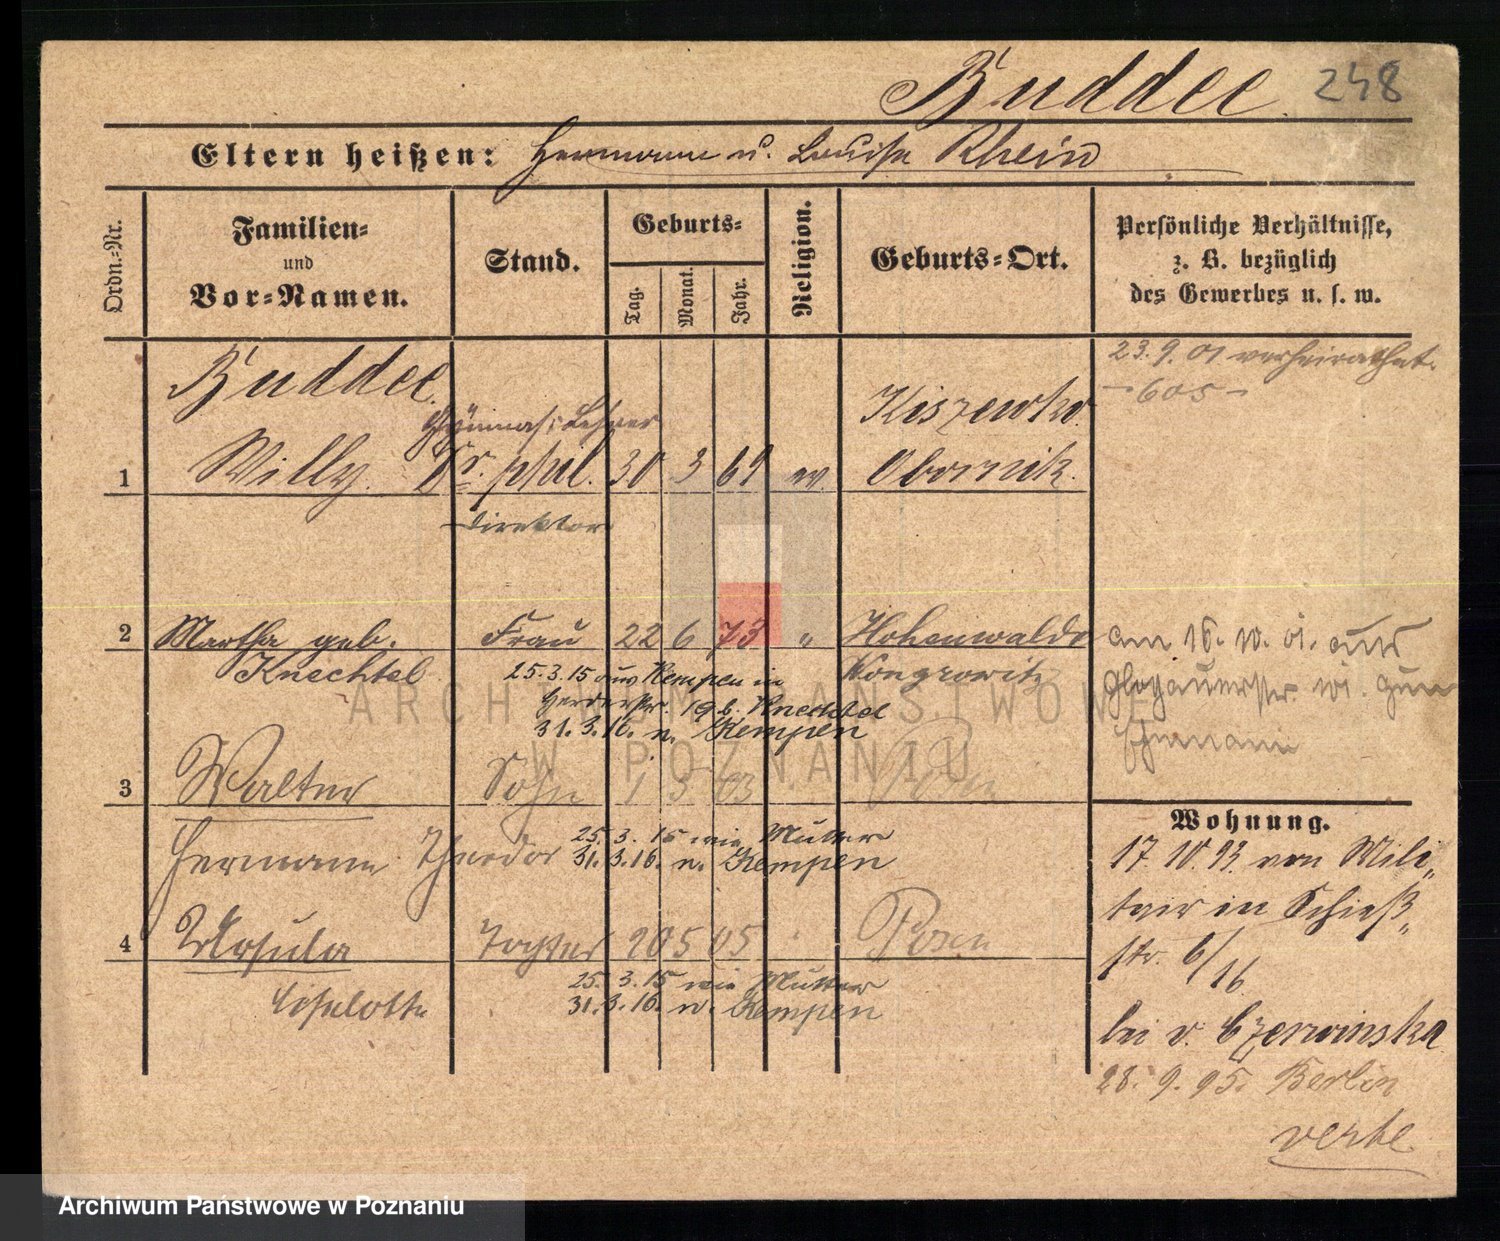 Buddee. 248
Eltern heißen: Hermann u. Louise Rhein
Ordn.-Nr.
Familien-
und
Vor-Namen.
Stand.
Geburts-
Tag.
Monat.
Jahr.
Religion.
Geburts-Ort.
Persönliche Verhältnisse,
z. B. bezüglich
des Gewerbes u. s. w.
23. 9. 01 verheirathet.
- 605 -
Buddee.
Gymnas: Lehrer
Kiszewko
1 Willy. Dr. phil. 30 3 69 ev Obornik.
direktor
2 Martha geb. Frau 22 6 73 " Hohenwalde
Knechtel
Wongrowitz
25.3.15 aus Kempen in
Herderstr. 19 b. Knechtel
31.3.16. n. Kempen
am 16. 10. 01. aus
Glogauerstr
3 Walter Sohn 1 5 03 Posen
Hermann Theodor
25. 3. 15 wie Mutter
31. 3. 16. n. Kempen
4 Ursula Tochter 20 5 05 Posen
Liselotte
25. 3. 15 wie Mutter
31. 3. 16. n. Kempen
Wohnung.
17. 10. 93 von Mili„
tair in Schieß„
str. 6/16
bei v. Czerwinska
28. 9. 95. Berlin
verte
ARCHIWUM PAŃSTWOWE
W POZNANIU
Archiwum Państwowe w Poznaniu